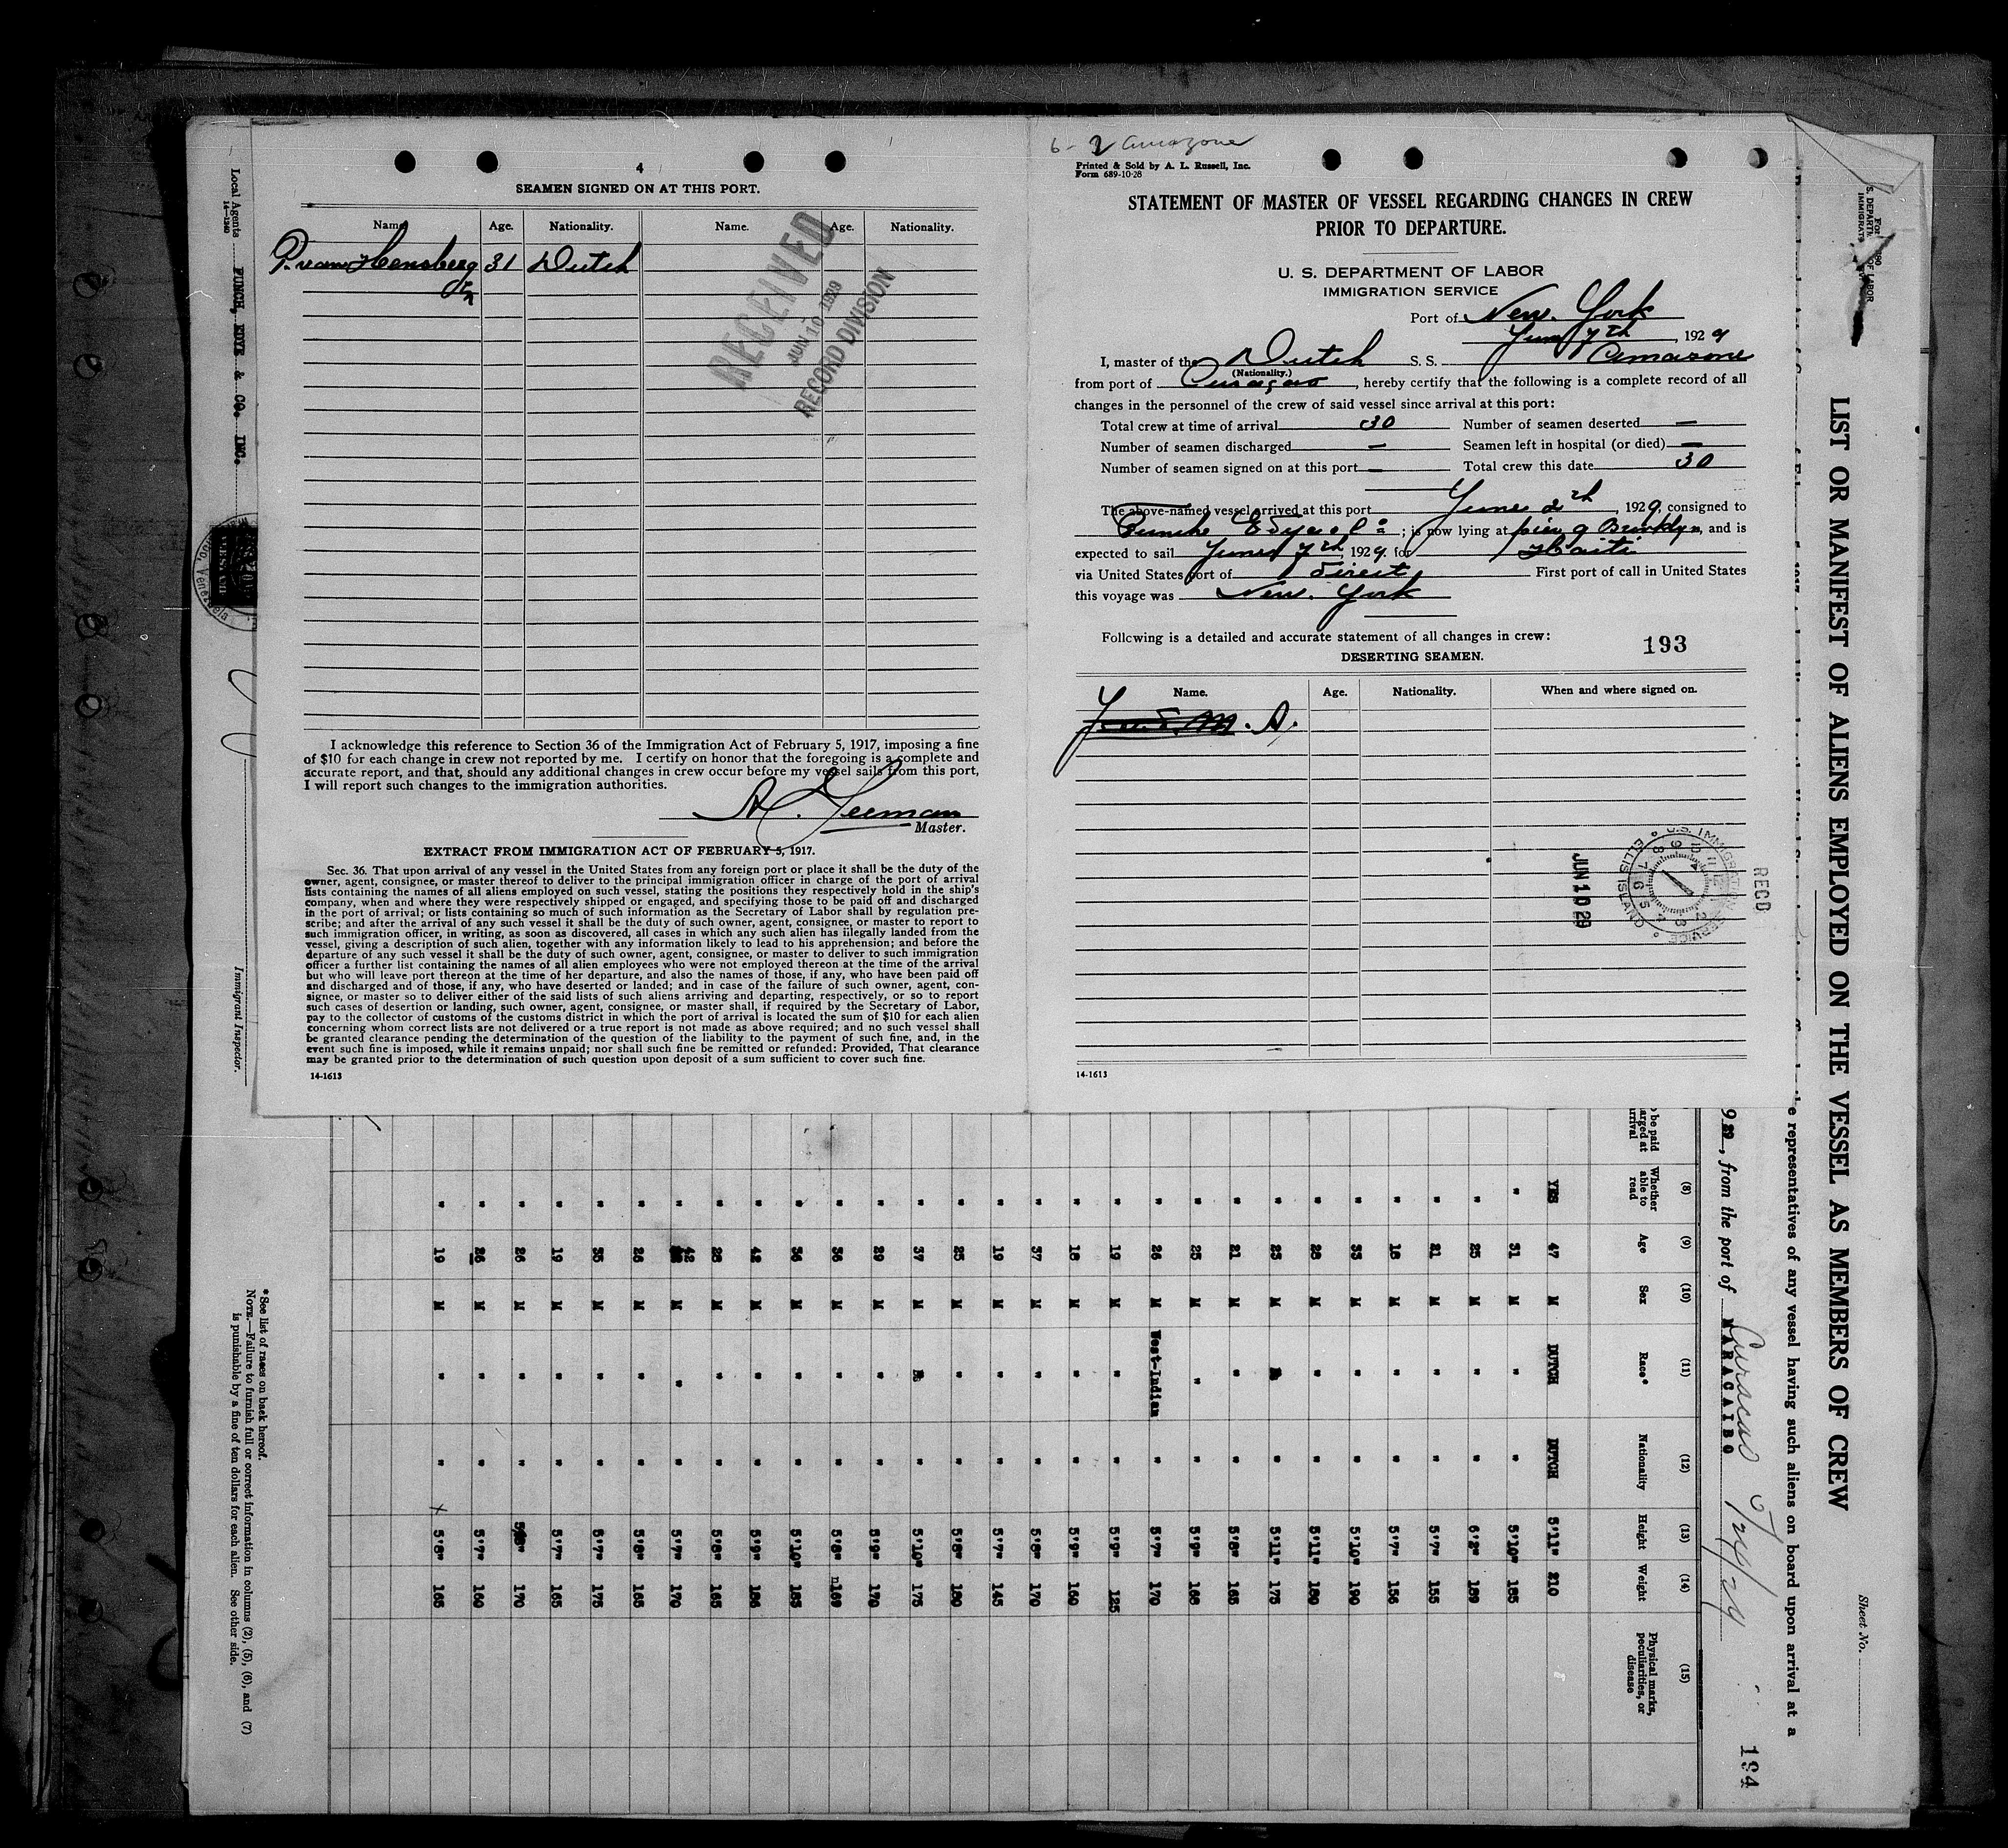 4
SEAMEN SIGNED ON AT THIS PORT.
Name. Age. Nationality. Name. Age. Nationality.
P. van Hensberg 31 Dutch
Jr
RECEIVED
JUN 10 1929
RECORD DIVISION
I acknowledge this reference to Section 36 of the Immigration Act of February 5, 1917, imposing a fine
of $10 for each change in crew not reported by me. I certify on honor that the foregoing is a complete and
accurate report, and that, should any additional changes in crew occur before my vessel sails from this port,
I will report such changes to the immigration authorities.
Master.
EXTRACT FROM IMMIGRATION ACT OF FEBRUARY 5, 1917.
Sec. 36. That upon arrival of any vessel in the United States from any foreign port or place it shall be the duty of the
owner, agent, consignee, or master thereof to deliver to the principal immigration officer in charge of the port of arrival
lists containing the names of all aliens employed on such vessel, stating the positions they respectively hold in the ship's
company, when and where they were respectively shipped or engaged, and specifying those to be paid off and discharged
in the port of arrival; or lists containing so much of such information as the Secretary of Labor shall by regulation pre-
scribe; and after the arrival of any such vessel it shall be the duty of such owner, agent, consignee, or master to report to
such immigration officer, in writing, as soon as discovered, all cases in which any such alien has illegally landed from the
vessel, giving a description of such alien, together with any information likely to lead to his apprehension; and before the
departure of any such vessel it shall be the duty of such owner, agent, consignee, or master to deliver to such immigration
officer a further list containing the names of all alien employees who were not employed thereon at the time of the arrival
but who will leave port thereon at the time of her departure, and also the names of those, if any, who have been paid off
and discharged and of those, if any, who have deserted or landed; and in case of the failure of such owner, agent, con-
signee, or master so to deliver either of the said lists of such aliens arriving and departing, respectively, or so to report
such cases of desertion or landing, such owner, agent, consignee, or master shall, if required by the Secretary of Labor,
pay to the collector of customs of the customs district in which the port of arrival is located the sum of $10 for each alien
concerning whom correct lists are not delivered or a true report is not made as above required; and no such vessel shall
be granted clearance pending the determination of the question of the liability to the payment of such fine, and, in the
event such fine is imposed, while it remains unpaid; nor shall such fine be remitted or refunded: Provided, That clearance
may be granted prior to the determination of such question upon deposit of a sum sufficient to cover such fine.
14-1613
6-2 Amazone
Printed & Sold by A. L. Russell, Inc.
Form 689-10-28
STATEMENT OF MASTER OF VESSEL REGARDING CHANGES IN CREW
PRIOR TO DEPARTURE.
U. S. DEPARTMENT OF LABOR
IMMIGRATION SERVICE
Port of New. York
June 7th, 1929
I, master of the Dutch S. S. Amazone
(Nationality.)
from port of Curaçao, hereby certify that the following is a complete record of all
changes in the personnel of the crew of said vessel since arrival at this port:
Total crew at time of arrival 30 Number of seamen deserted —
Number of seamen discharged — Seamen left in hospital (or died) —
Number of seamen signed on at this port — Total crew this date 30
The above-named vessel arrived at this port June 2th, 1929, consigned to
; is now lying at pier 9 Brooklyn, and is
expected to sail June 7th, 1929, for Haiti
via United States port of direct First port of call in United States
this voyage was New. York
Following is a detailed and accurate statement of all changes in crew:
193
DESERTING SEAMEN.
Name. Age. Nationality. When and where signed on.
U.S. IMMIGRATION SERVICE ELLIS ISLAND
RECD
JUN 10 29
14-1613
Local Agents FUNCH, EDYE & CO. INC.
14-1240
Immigrant Inspector.
Sheet No.
LIST OR MANIFEST OF ALIENS EMPLOYED ON THE VESSEL AS MEMBERS OF CREW
representatives of any vessel having such aliens on board upon arrival at a
29, from the port of MARACAIBO Curacao
194
(8) (9) (10) (11) (12) (13) (14) (15)
Whether able to read Age Sex Race* Nationality Height Weight Physical marks, peculiarities, or disease
YES 47 M DUTCH DUTCH 5'11" 210
" 31 M " " 5'10" 185
" 25 M " " 6'2" 189
" 21 M " " 5'7" 155
" 18 M " " 5'7" 156
" 33 M " " 5'10" 190
" 28 M " " 5'11" 180
" 23 M " 5'11" 175
" 21 M " " 5'8" 165
" 25 M " " 5'9" 168
" 26 M West-Indian " 5'7" 170
" 19 M " " 5'9" 125
" 18 M " " 5'9" 160
" 37 M " " 5'8" 170
" 19 M " " 5'7" 145
" 25 M " " 5'8" 180
" 37 M " 5'10" 175
" 29 M " " 5'9" 170
" 36 M " " 5'8" 169
" 36 M " " 5'10" 185
" 42 M " " 5'9" 186
" 28 M " " 5'8" 165
" 42 M " " 5'7" 170
" 26 M " " 5'8" 165
" 35 M " " 5'7" 175
" 19 M " " 5'7" 165
" 26 M " " 170
" 26 M " " 5'7" 160
" 19 M " " 5'8" 165
*See list of races on back hereof.
NOTE.—Failure to furnish full or correct information in columns (2), (5), (6), and (7)
is punishable by a fine of ten dollars for each alien. See other side.